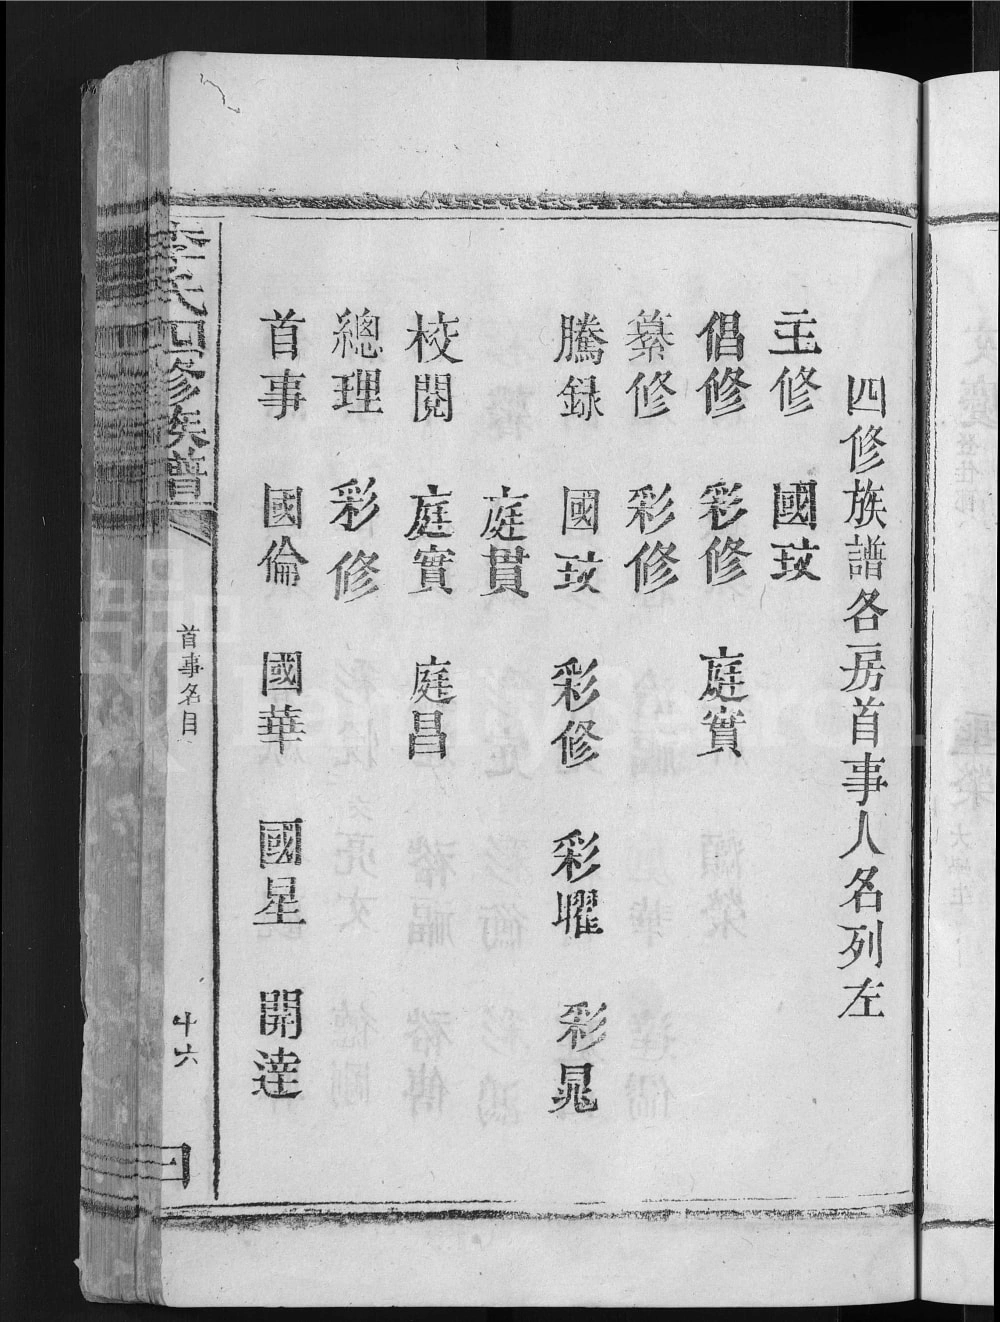 四修族譜各房首事人名列左
主修 國玟
倡修 彩修 庭實
纂修 彩修
騰録 國玟 彩修 彩曜 彩晁
庭貫
校閱 庭實 庭昌
總理 彩修
首事 國倫 國華 國星 開達
李氏四修族譜
首事名目
十六